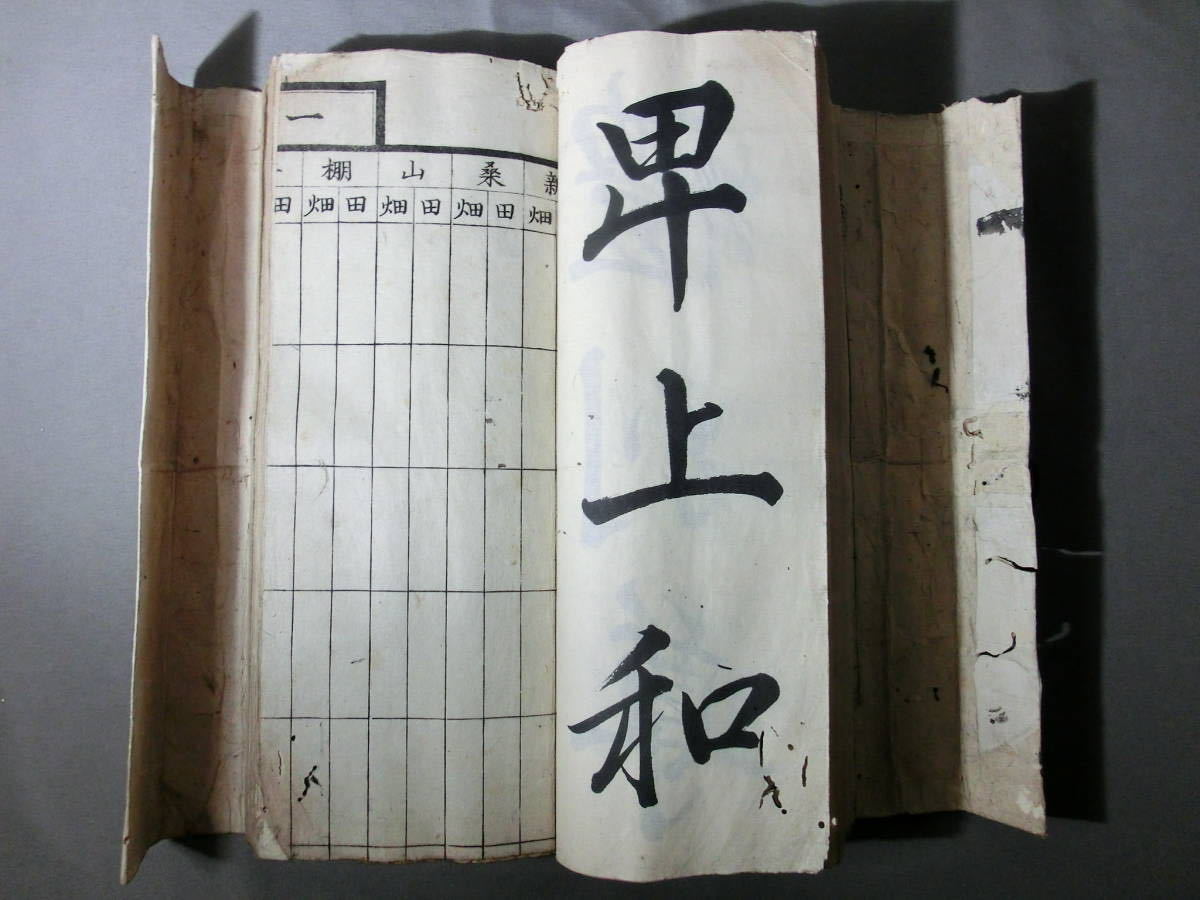 卑上和
一
新桑山棚
畑田畑田畑田畑田